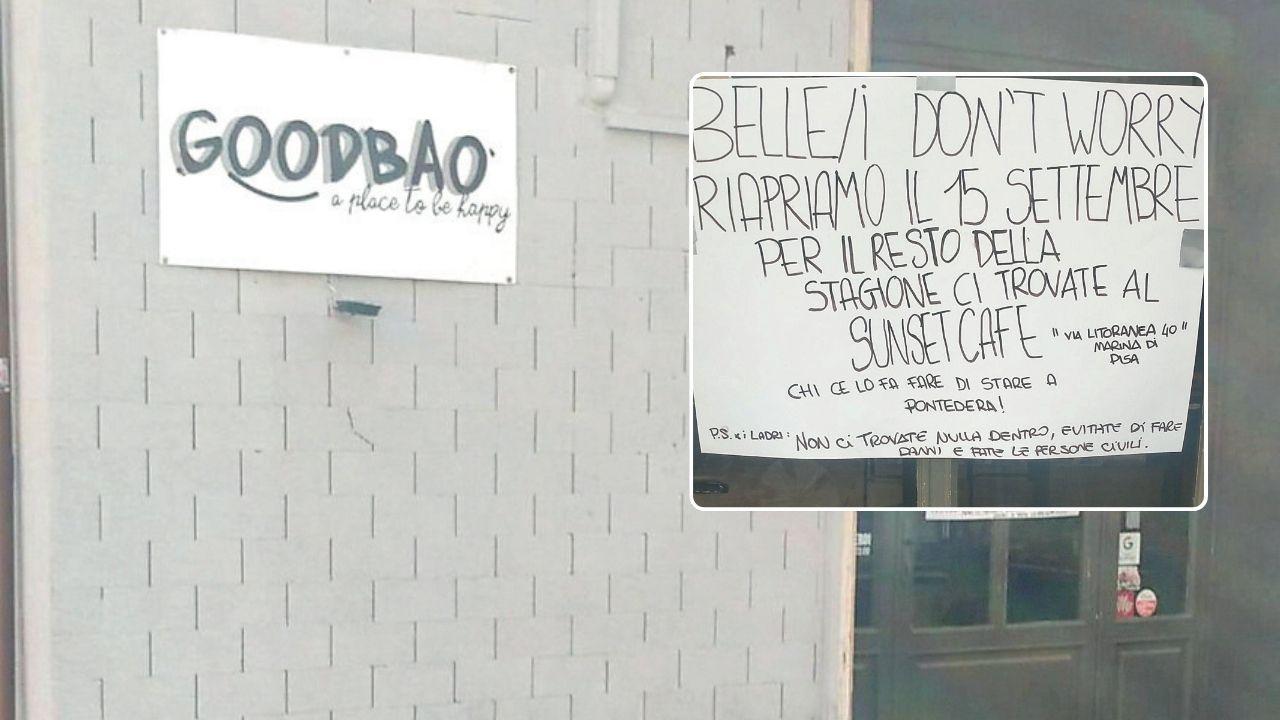 GOODBAO
a place to be happy
BELLE/i DON'T WORRY
RIAPRIAMO IL 15 SETTEMBRE
PER IL RESTO DELLA
STAGIONE CI TROVATE AL
SUNSET CAFE "VIA LITORANEA 40"
MARINA DI
PISA
CHI CE LO FA FARE DI STARE A
PONTEDERA!
P.S. xi LADRI: NON Ci TROVATE NULLA DENTRO, EVITATE Di FARE
DANNI E FATE LE PERSONE CIVILI.
G